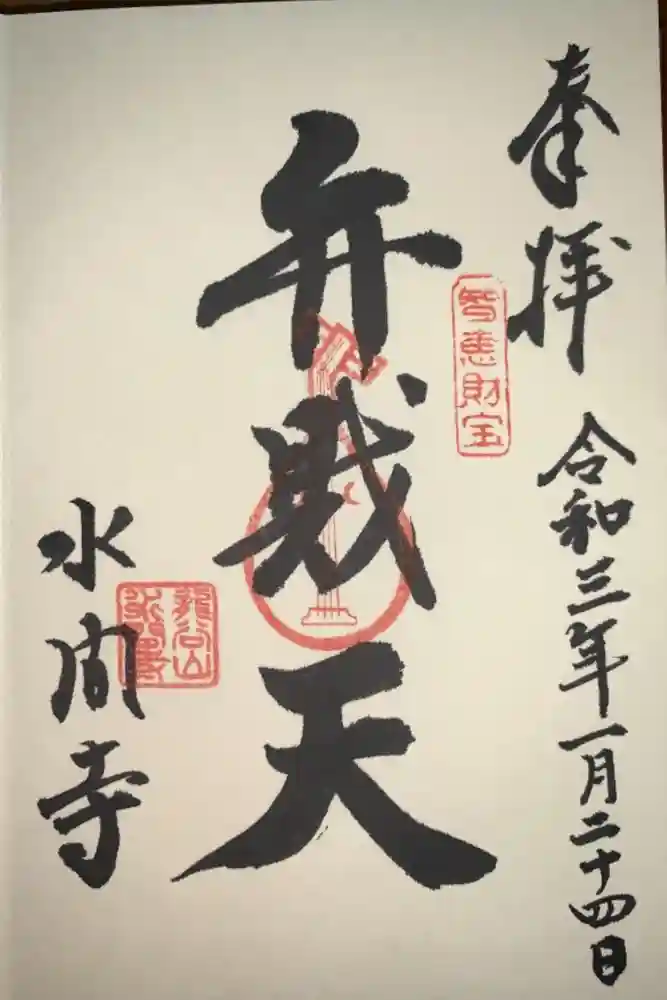 奉拝
令和三年一月二十四日
智恵財宝
弁財天
水間寺
龍谷山
水間寺